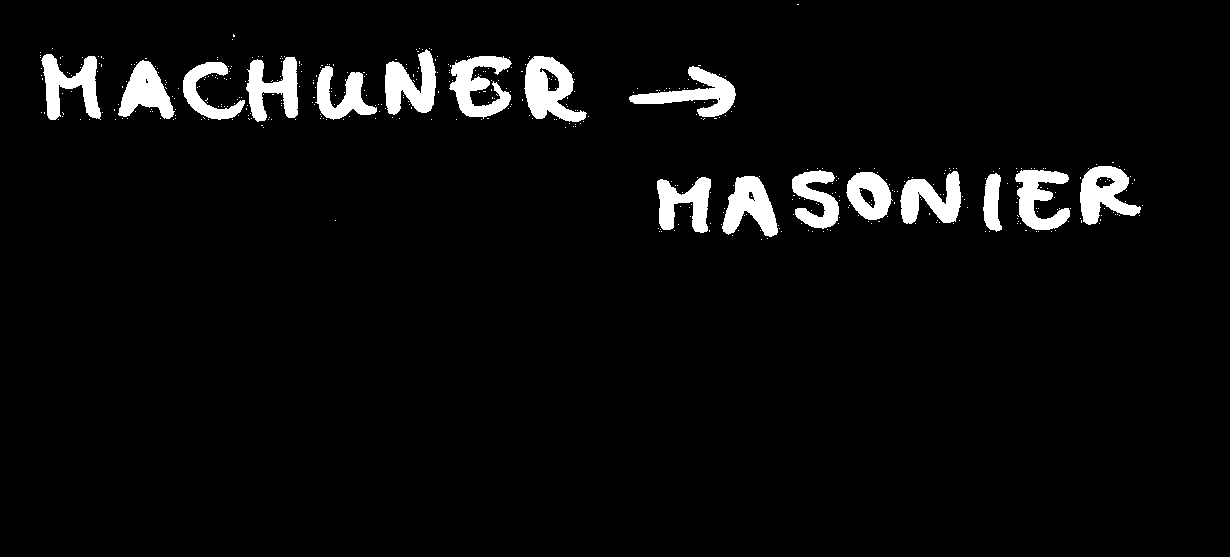 MACHUNER →
MASONIER